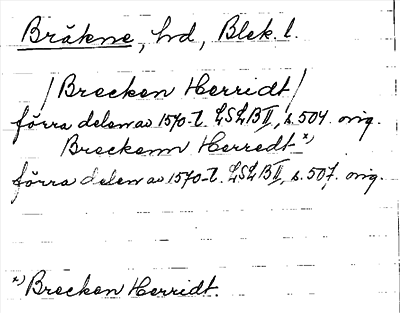 Bräkne, hd, Blek. l.
/Brecken Herridt/
förra delen av 1570-t. LSLBII, s. 504. orig.
Breckenn Herredt x)
förra delen av 1570-t. LSLBII, s. 507. orig.
x) Brecken Herridt.